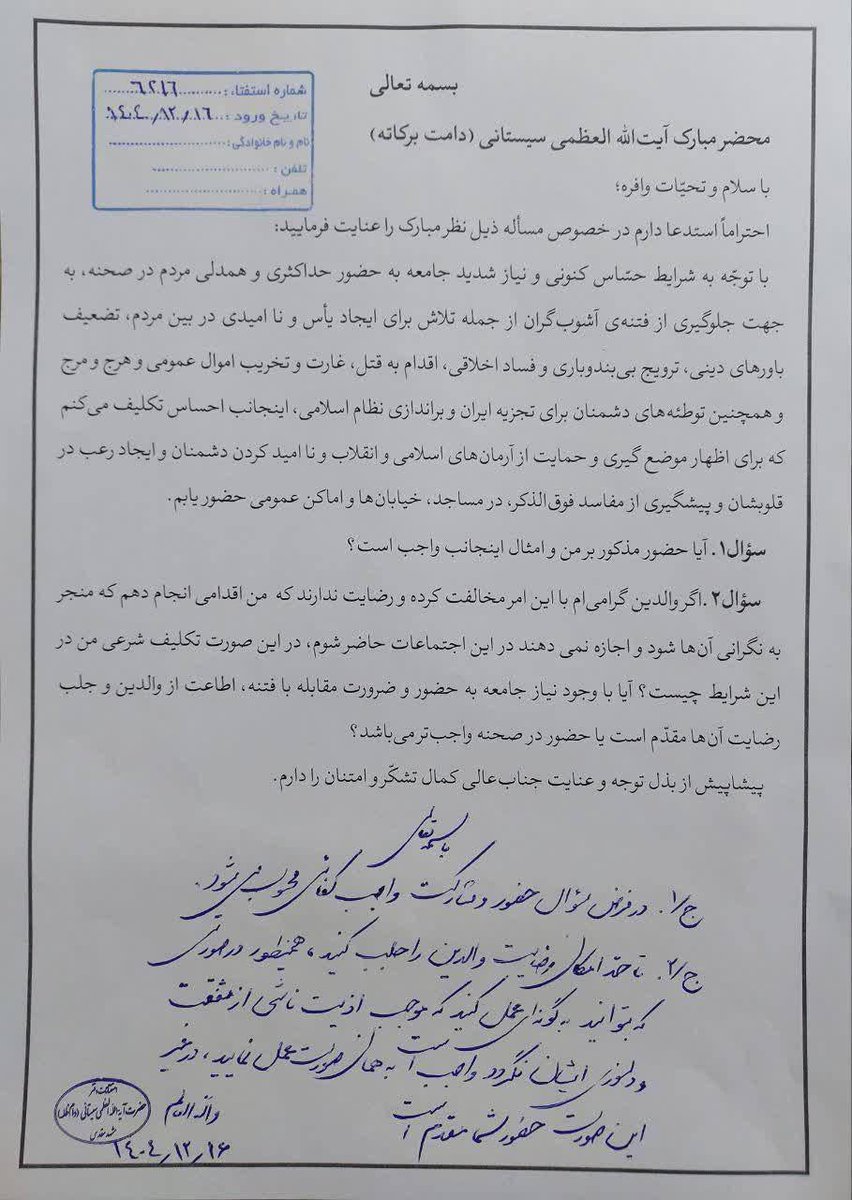 بسمه تعالی
شماره استفتاء: ۶۲۱۶
تاریخ ورود: ۱۴۰۴/۱۲/۱۶
نام و نام خانوادگی:
تلفن:
همراه:
محضر مبارک آیت‌الله العظمی سیستانی (دامت برکاته)
با سلام و تحیّات وافره؛
احتراماً استدعا دارم در خصوص مسأله ذیل نظر مبارک را عنایت فرمایید:
با توجّه به شرایط حسّاس کنونی و نیاز شدید جامعه به حضور حداکثری و همدلی مردم در صحنه، به
جهت جلوگیری از فتنه‌ی آشوب‌گران از جمله تلاش برای ایجاد یأس و نا امیدی در بین مردم، تضعیف
باورهای دینی، ترویج بی‌بندوباری و فساد اخلاقی، اقدام به قتل، غارت و تخریب اموال عمومی و هرج و مرج
و همچنین توطئه‌های دشمنان برای تجزیه ایران و براندازی نظام اسلامی، اینجانب احساس تکلیف می‌کنم
که برای اظهار موضع گیری و حمایت از آرمان‌های اسلامی و انقلاب و نا امید کردن دشمنان و ایجاد رعب در
قلوبشان و پیشگیری از مفاسد فوق‌الذکر، در مساجد، خیابان‌ها و اماکن عمومی حضور یابم.
سؤال۱. آیا حضور مذکور بر من و امثال اینجانب واجب است؟
سؤال۲. اگر والدین گرامی‌ام با این امر مخالفت کرده و رضایت ندارند که من اقدامی انجام دهم که منجر
به نگرانی آن‌ها شود و اجازه نمی دهند در این اجتماعات حاضر شوم، در این صورت تکلیف شرعی من در
این شرایط چیست؟ آیا با وجود نیاز جامعه به حضور و ضرورت مقابله با فتنه، اطاعت از والدین و جلب
رضایت آن‌ها مقدّم است یا حضور در صحنه واجب‌تر می‌باشد؟
پیشاپیش از بذل توجه و عنایت جناب‌عالی کمال تشکّر و امتنان را دارم.
باسمه تعالی
ج/۱. در فرض سؤال حضور و مشارکت واجب کفایی محسوب می‌شود.
ج/۲. تا حدّ امکان رضایت والدین را جلب کنید، همینطور در صورتی
که بتوانید به گونه‌ای عمل کنید که موجب اذیت ناشی از شفقت
و دلسوزی ایشان نگردد واجب است به همان صورت عمل نمایید، در غیر
این صورت حضور شما مقدم است
والله العالم
۱۴۰۴/۱۲/۱۶
حضرت آیة الله العظمی سیستانی